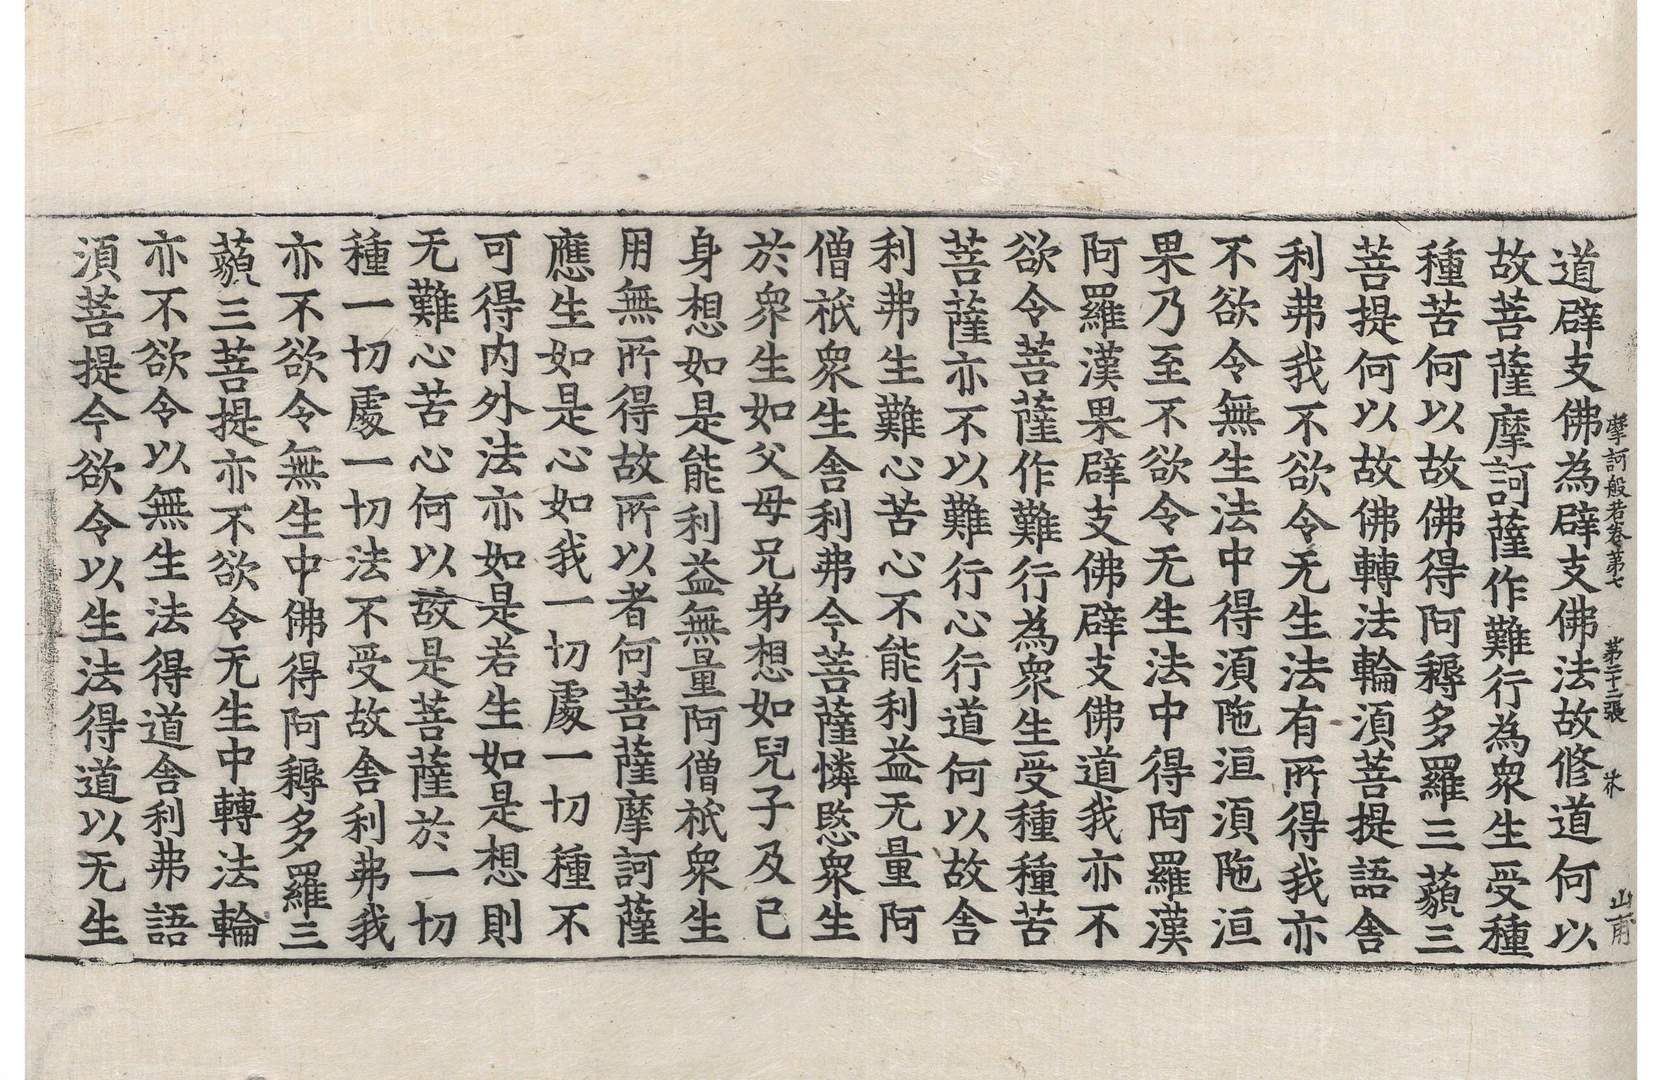 摩訶般若卷第七　第二十二張　　山甫
道辟支佛為辟支佛法故修道何以
故菩薩摩訶薩作難行為衆生受種
種苦何以故佛得阿耨多羅三藐三
菩提何以故佛轉法輪湏菩提語舎
利弗我不欲令无生法有所得我亦
不欲令無生法中得湏陁洹湏陁洹
果乃至不欲令无生法中得阿羅漢
阿羅漢果辟支佛辟支佛道我亦不
欲令菩薩作難行為衆生受種種苦
菩薩亦不以難行心行道何以故舎
利弗生難心苦心不能利益无量阿
僧祇衆生舎利弗今菩薩憐愍衆生
於衆生如父母兄弟想如兒子及己
身想如是能利益無量阿僧祇衆生
用無所得故所以者何菩薩摩訶薩
應生如是心如我一切處一切種不
可得内外法亦如是若生如是想則
无難心苦心何以故是菩薩於一切
種一切處一切法不受故舎利弗我
亦不欲令無生中佛得阿耨多羅三
藐三菩提亦不欲令无生中轉法輪
亦不欲令以無生法得道舎利弗語
湏菩提今欲令以生法得道以无生